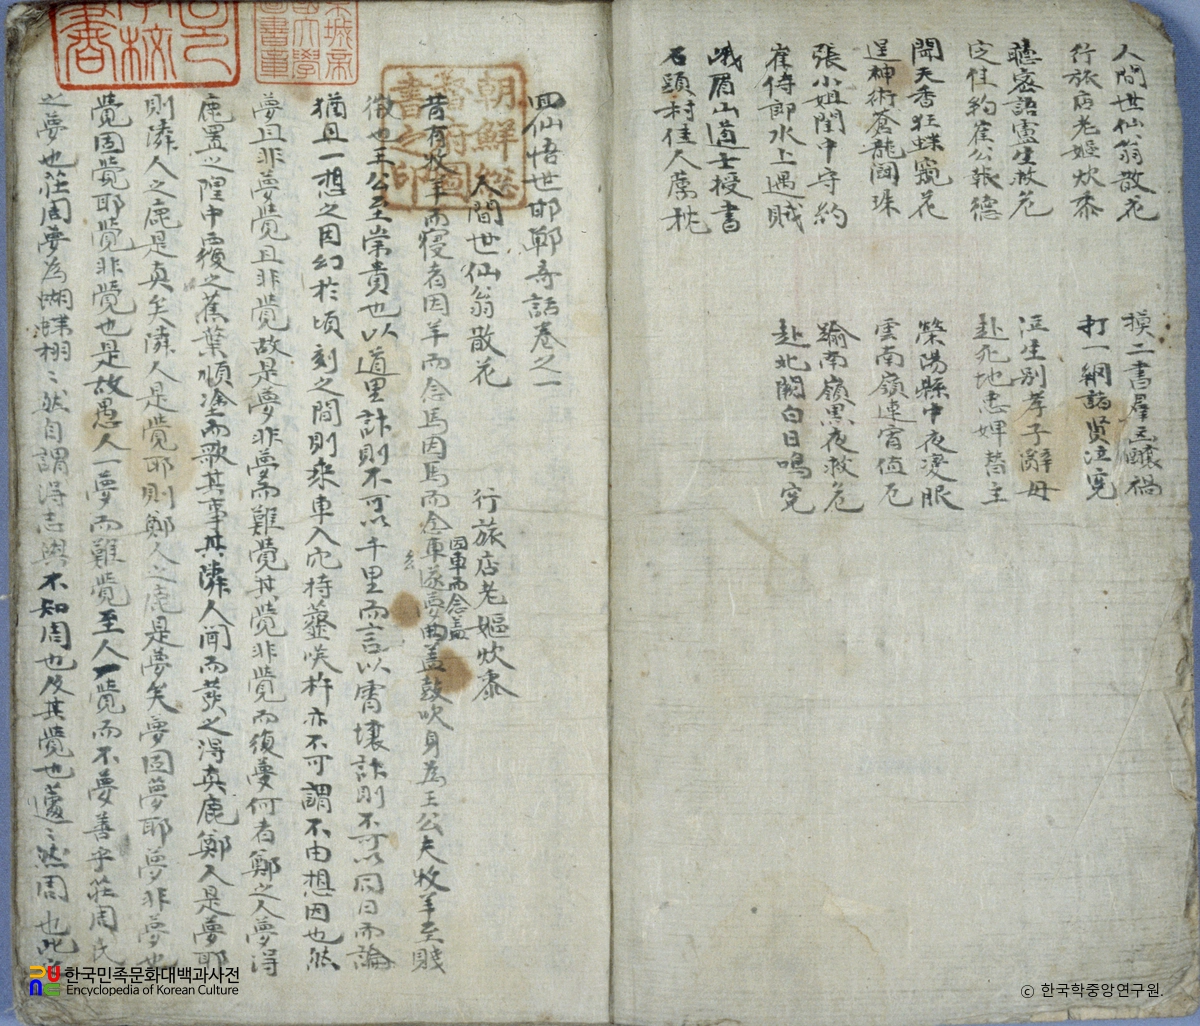 人間世仙翁散花
行旅店老嫗炊黍
聽密語靈生救厄
定佳約崔公報德
聞天香狂蝶窺花
逞神術蒼龍鬪珠
張小姐閨中守約
崔侍郎水上遇賊
峨眉山道士授書
石頭村佳人薦枕
換二書群凶釀禍
打一網諸賢泣冤
泣生別孝子辭母
赴死地忠婢替主
滎陽縣中夜燙眼
雲南嶺連宵值厄
踰南嶺黑夜救危
赴北闕白日鳴冤
四仙悟世邯鄲奇話卷之一
人間世仙翁散花 行旅店老嫗炊黍
昔有牧羊而寢者因羊而念馬因馬而念車遂夢曲盖鼓吹身為王公夫牧羊至賤
因車而念盖
徵也王公至崇貴也以道里計則不可以千里而言以霄壤計則不可以同日而論
猶且一想之因幻於頃刻之間則乘車入穴持虀咲杵亦不可謂不由想因也然
夢且非夢覺且非覺故是夢非夢而難覺其覺非覺而復夢何者鄭之人夢得
鹿置之隍中覆之蕉葉順塗而歌其事其隣人聞而获之得真鹿鄭人是夢耶
則隣人之鹿是真矣隣人是覺耶則鄭人之鹿是夢矣夢固夢耶夢非夢也
覺固覺耶覺非覺也是故愚人一夢而難覺至人一覺而不夢善乎莊周氏
之夢也莊周夢為蝴蝶栩〻然自謂得志與不知周也及其覺也蘧〻然周也此
朝鮮總
督府圖
書之印
한국민족문화대백과사전
Encyclopedia of Korean Culture
ⓒ 한국학중앙연구원.